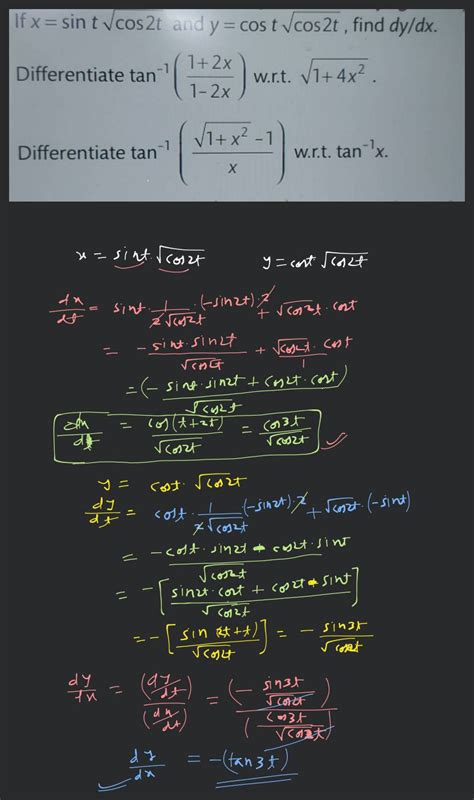 If x = sin t √cos2t and y = cos t √cos2t , find dy/dx.
Differentiate tan⁻¹ ( (1+2x) / (1-2x) ) w.r.t. √1+4x² .
Differentiate tan⁻¹ ( (√1+x² -1) / x ) w.r.t. tan⁻¹x.
x = sint √cos2t y = cost √cos2t
dx/dt = sint · 1/(2√cos2t) · (-sin2t)·2 + √cos2t · cost
= - sint · sin2t / √cos2t + √cos2t · cost / 1
= (- sint · sin2t + cos2t · cost) / √cos2t
dx/dt = cos(t+2t) / √cos2t = cos3t / √cos2t
y = cost · √cos2t
dy/dt = cost · 1/(2√cos2t) · (-sin2t)·2 + √cos2t · (-sint)
= - cost · sin2t - cos2t · sint / √cos2t
= - [ sin2t · cost + cos2t · sint / √cos2t ]
= - [ sin(2t+t) / √cos2t ] = - sin3t / √cos2t
dy/dx = (dy/dt) / (dx/dt) = (- sin3t / √cos2t) / (cos3t / √cos2t)
dy/dx = -(tan3t)